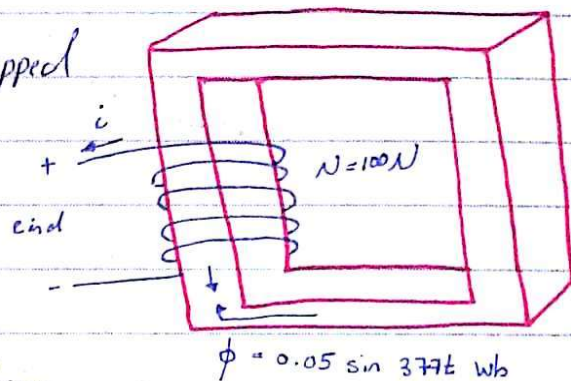 pped
i
+
N=100N
eind
-
ϕ = 0.05 sin 377t wb